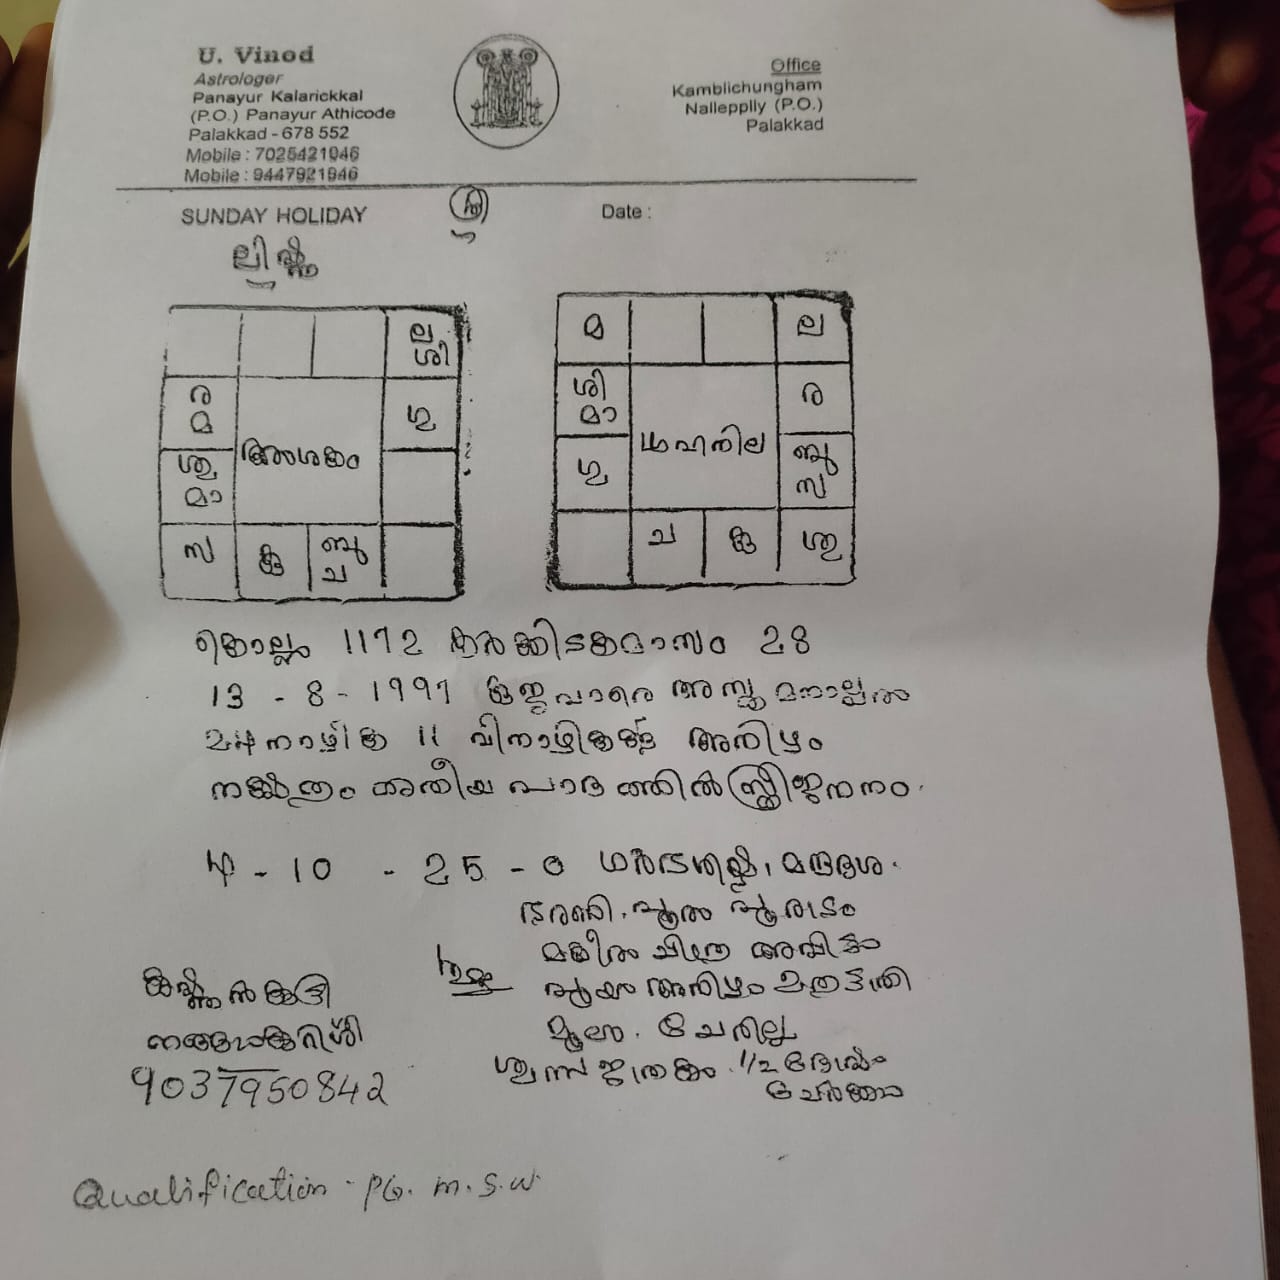 U. Vinod
Astrologer
Panayur Kalarickkal
(P.O.) Panayur Athicode
Palakkad - 678 552
Mobile : 7025421946
Mobile : 9447921946
Office
Kamblichungham
Nallepplly (P.O.)
Palakkad
SUNDAY HOLIDAY
Date :
ല
ശി
ര
മ
ഗു
അംശകം
ശു
മാ
സ
കു
ബു
ച
മ
ല
ശി
മാ
ര
ഗ്രഹനില
ഗു
ബു
സ
ച
കു
ശു
കൊല്ലം 1172 കർക്കിടകമാസം 28
13 - 8 - 1997
11 വിനാഴികക്ക് അനിഴം
നക്ഷത്രം പാദത്തിൽ സ്ത്രീജനനം.
4 - 10 - 25 - 0
ഭരണി. പൂരം പൂരാടം
മകീരം ചിത്ര അവിട്ടം
പൂയം അനിഴം ഉത്രട്ടാതി
മൂലം. ചേരില്ല
ജാതകം. 1/2 ദോഷം
9037950842
Qualification - PG. M.S.W.